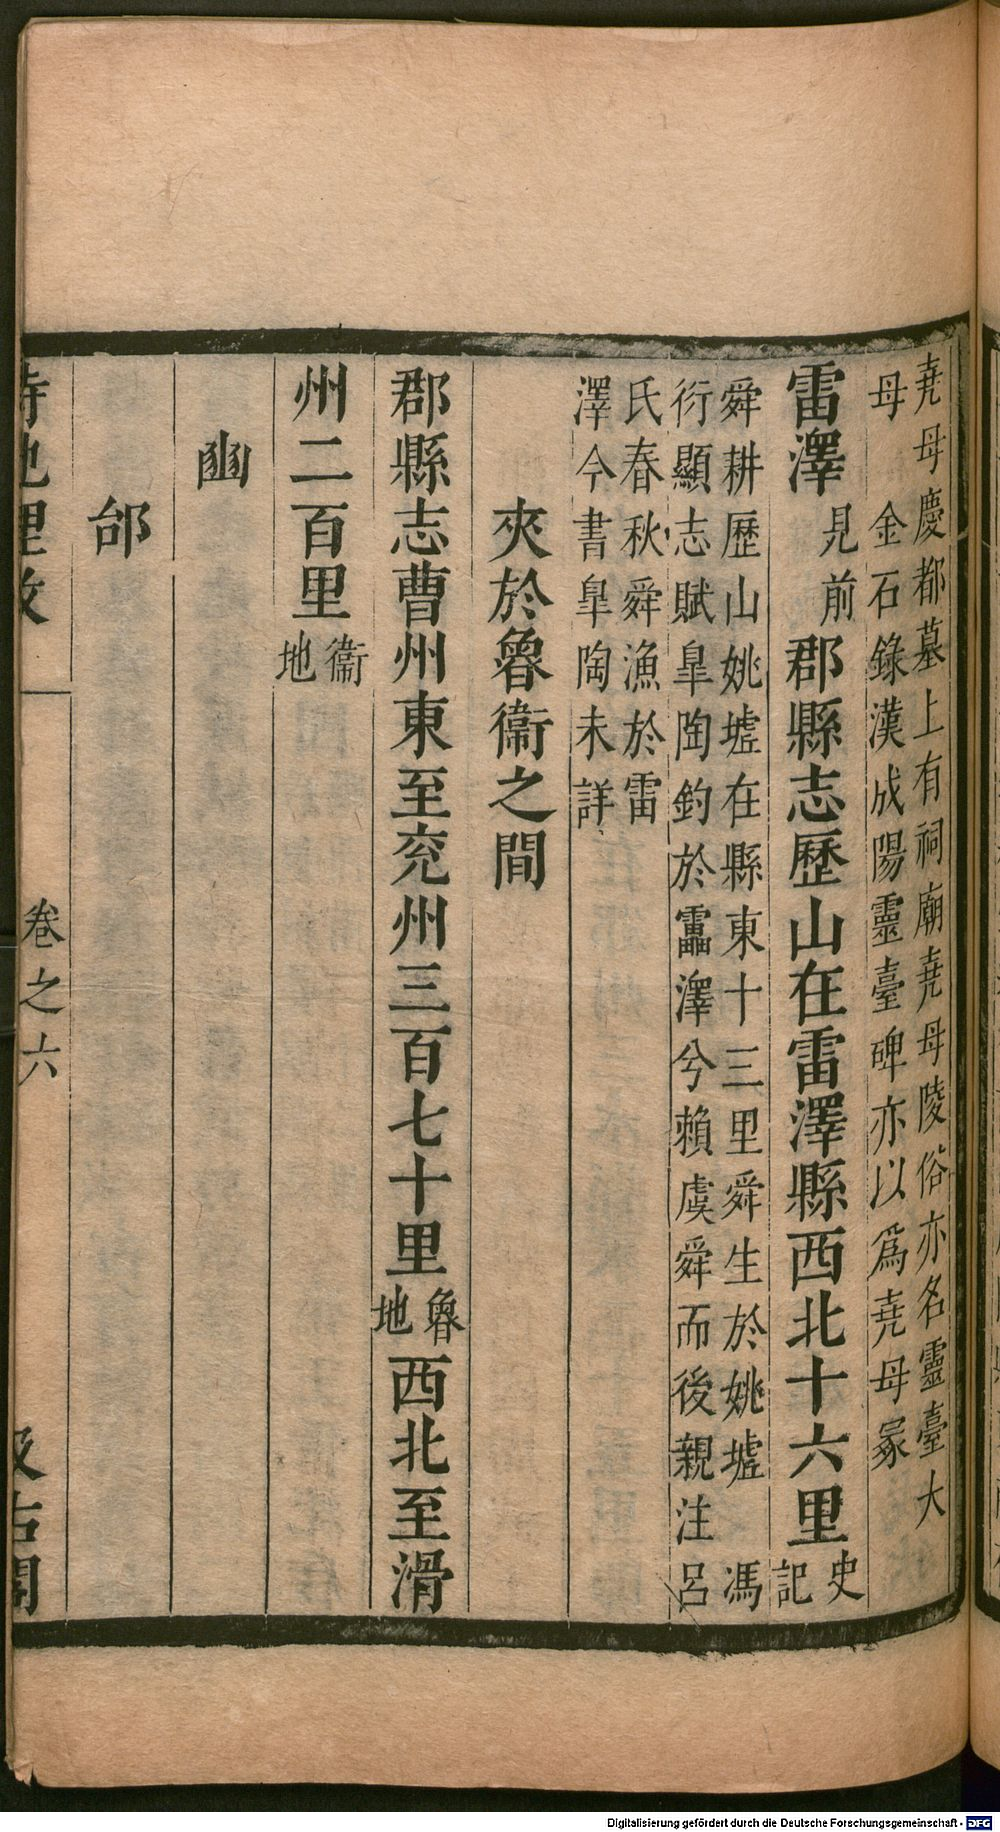 堯母慶都墓上有祠廟堯母陵俗亦名靈臺大
母　金石錄漢成陽靈臺碑亦以爲堯母冢
雷澤見前郡縣志歷山在雷澤縣西北十六里史記
舜耕歷山姚墟在縣東十三里舜生於姚墟　馮
衍顯志賦臯陶釣於靁澤兮賴虞舜而後親注　呂
氏春秋舜漁於雷
澤今書臯陶未詳
夾於魯衞之間
郡縣志曹州東至兖州三百七十里魯地西北至滑
州二百里衞地
豳
邰
詩地里攷　卷之六　汲古閣
Digitalisierung gefördert durch die Deutsche Forschungsgemeinschaft - DFG